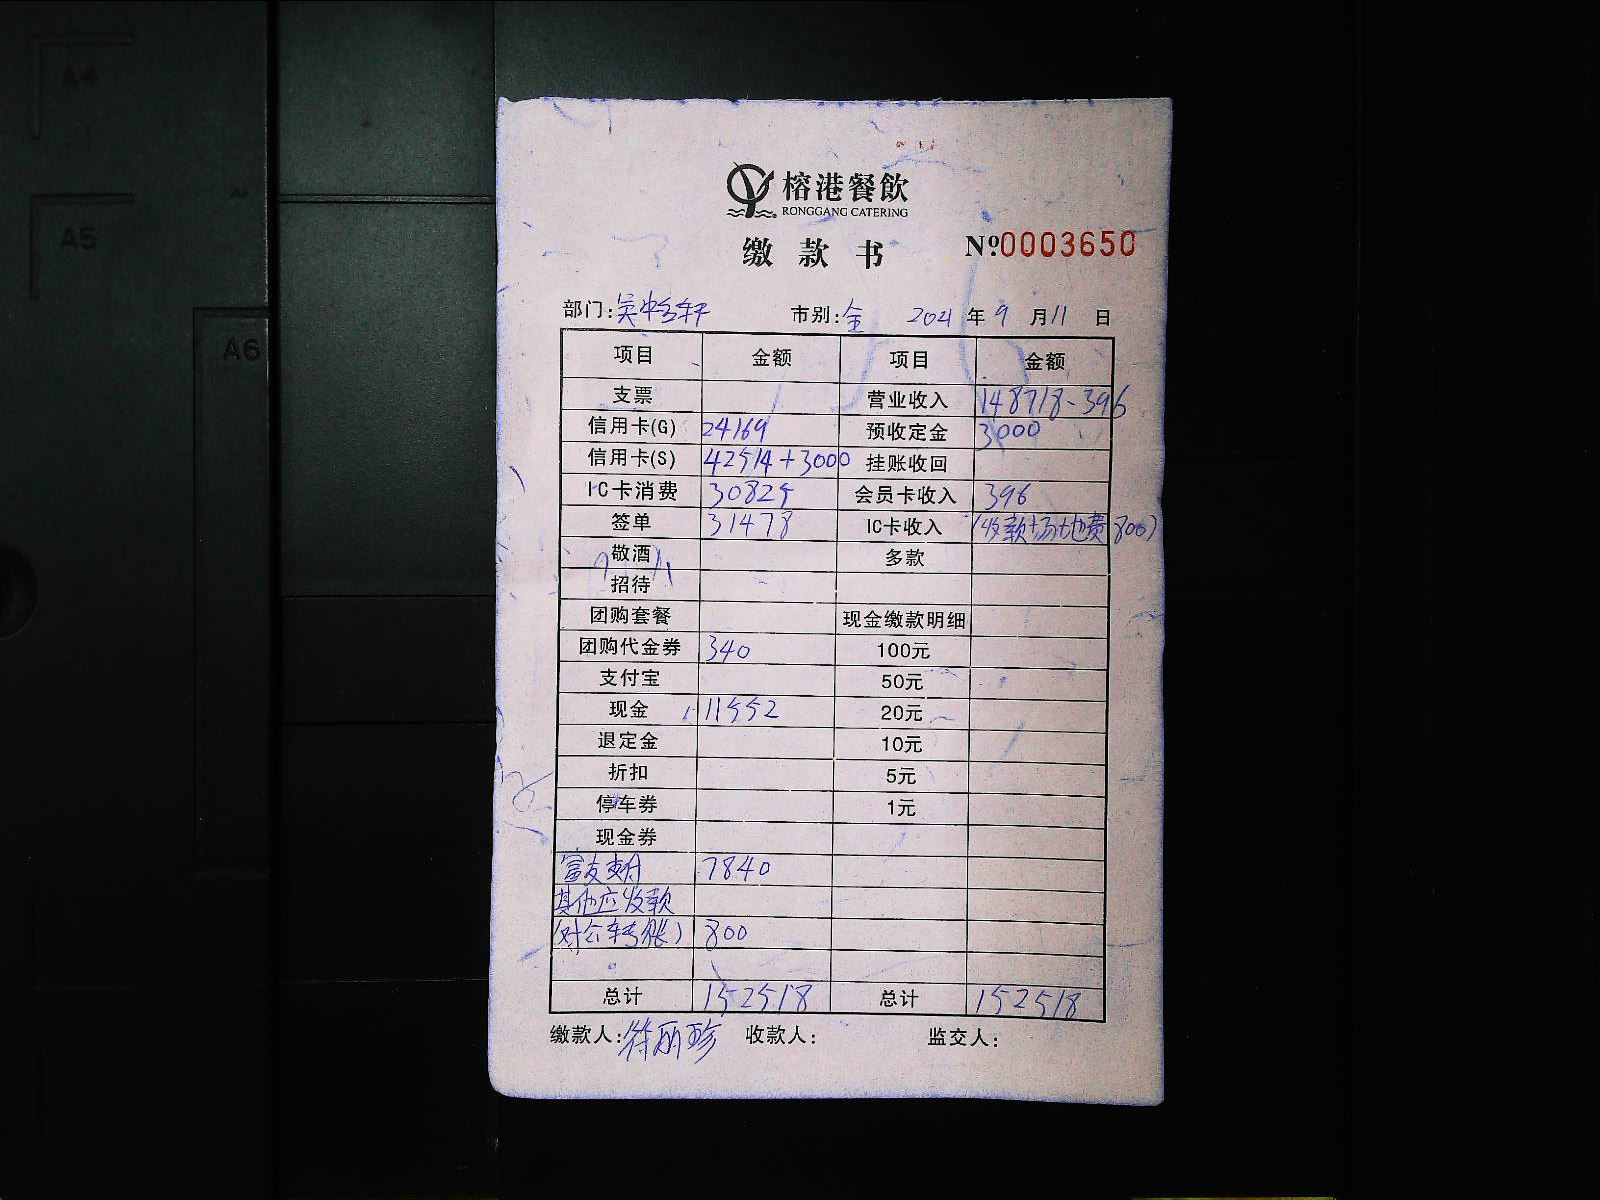 A4
A5
A6
榕港餐飲
RONGGANG CATERING
缴款书 Nº:0003650
部门: 市别:全 2021 年 9 月 11 日
项目 金额 项目 金额
支票 营业收入 148718-396
信用卡(G) 24169 预收定金 3000
信用卡(S) 42514+3000 挂账收回
IC卡消费 30825 会员卡收入 396
签单 31478 IC卡收入 (收款+场地费800)
敬酒 多款
招待
团购套餐 现金缴款明细
团购代金券 340 100元
支付宝 50元
现金 11552 20元
退定金 10元
折扣 5元
停车券 1元
现金券
富友支付 7840
其他应收款
(对公转账) 800
总计 152518 总计 152518
缴款人:符丽珍 收款人: 监交人: